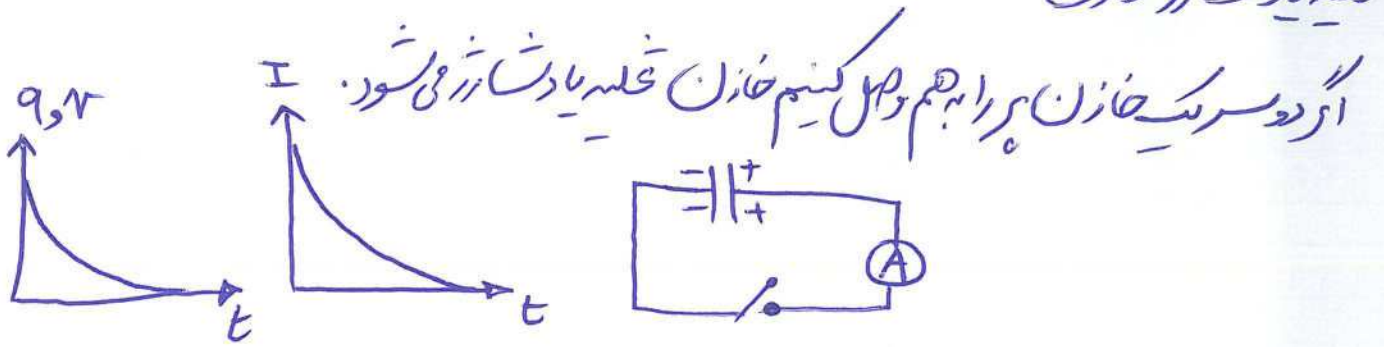 اگر دو سر یک خازن پر را به هم وصل کنیم خازن تخلیه یا دشارژ می‌شود.
q,v
I
- +
- +
A
t
t